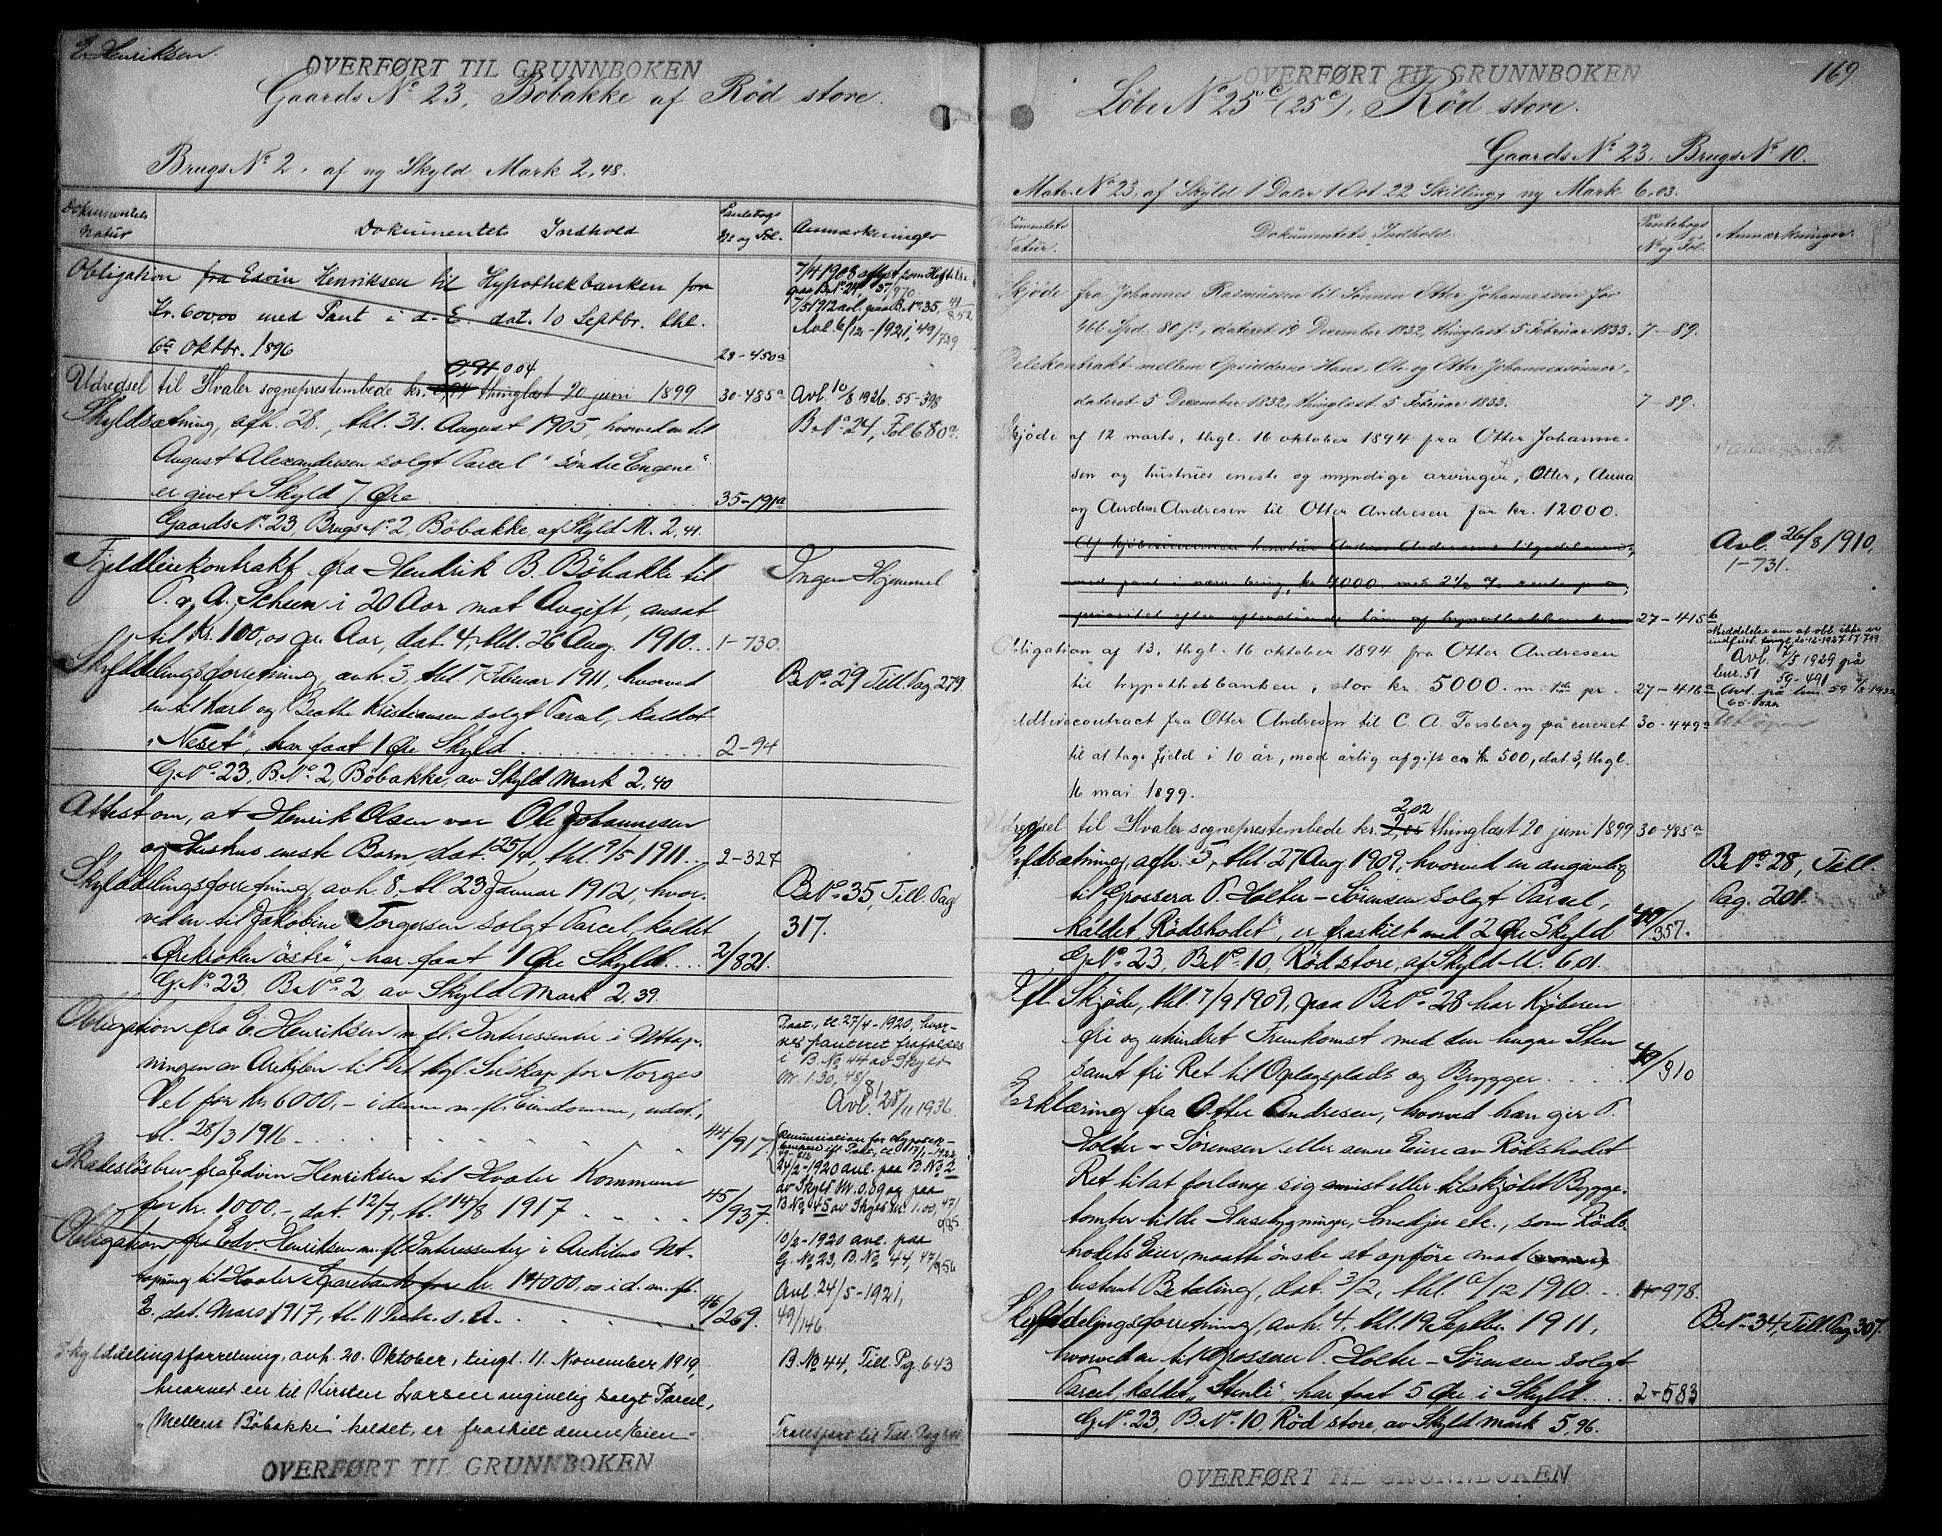 E. Henriksen.
OVERFØRT TIL GRUNNBOKEN
Gaards No 23, Böbakke af Röd store.
Brugs No 2, af ny Skyld Mark 2,48.
Dokumentets Natur
Dokumentets Indhold
Pantebogs No og Fol.
Anmærkninger
Obligation fra Edvin Henriksen til Hypothekbanken for
Kr. 6000,00 med Pant i d. E. dat. 10 Septbr. thl.
6te Oktbr. 1896
28-450a
7/4 1908 aflyst som Heftelse
paa B.No 24 37/970
7/5 1912 avl. paa B.No 35, 41/852
Avl. 6/12-1921, 49/729
0,91 0.04
Udredsel til Hvaler sogneprestembede kr. thinglæst 20 juni 1899
30-485a
Avl. 10/8 1926. 55-398
Skyldsætning, afh. 28., thl. 31. August 1905, hvorved en til
August Alexandersen solgt Parcel "Söndre Engene"
er givet Skyld 7 Øre
35-191a
B.No 24, Fol 680a.
Gaards No 23, Brugs No 2, Böbakke, af Skyld M. 2,41
Fjeldleiekontrakt fra Hendrik B. Böbakke til
P. v. A. Scheen i 20 Aar mot Avgift, ansat
til Kr. 100,00 pr. Aar, dat. 4, thl. 26 Aug. 1910.
1-730.
Ingen Hjemmel
Skylddelingsforretning, avh. 3, thl. 7 Februar 1911, hvorved
en til Karl og Beathe Kristiansen solgt Parcel, kaldet
"Neset", har faat 1 Øre Skyld
2-94
B.No 29 Till. Pag. 279.
G.No 23, B.No 2, Böbakke, av Skyld Mark 2,40
Attest om, at Henrik Olsen var Ole Johannesen
og Hustrus eneste Barn, dat. 25/4, thl. 9/5 1911.
2-327
Skylddelingsforretning, avh. 8 tl. 23 Januar 1912, hvor-
ved en til Jakobine Torgersen solgt Parcel, kaldet
"Örekroken östre", har faat 1 Øre Skyld.
2/821.
B.No 35, Till. Pag
317.
G.No 23, B.No 2 av Skyld Mark 2,39.
Obligation fra E. Henriksen m. fl. Interessenter i Uttap-
ningen av Arekilen til Det kgl. Selskap for Norges
Vel for Kr. 6000,- i denne m. fl. Eiendomme, udat.,
tl. 28/3 1916
44/917.
Paat., tl. 27/4-1920, hvor-
ved panteret frafaldes
i B.No 44 av Skyld
M. 1.30, 48/8
Avl. 28/11 1936.
Skadeslösbrev fra Edvin Henriksen til Hvaler Kommune
for kr. 1000.- dat. 12/7, tl. 14/8 1917
45/937.
24/2-1920 avl. paa B.No 2
av Skyld M. 0.09 og paa
B.No 45 av Skyld M. 1.00, 47/985
Obligation fra Edv. Henriksen m. fl. Interessenter i Arekilens Ut-
taping til Hvaler Sparebank for kr. 14000,00 i d. m. fl.
E. dat. Mars 1917, tl. 11 Febr. s. A.
46/269.
10/2-1920 avl. paa
G.No 23, B.No 44, 47/956
Avl. 24/5-1921,
49/146
Skylddelingsforretning, avh. 20. Oktober, tingl. 11. November 1919,
hvorved en til Kirsten Larsen angivelig solgt Parcel,
"Mellem Böbakke" kaldet, er fraskilt denne Eien-
B.No 44, Till. Pg. 643
Transport til Till. Pag
OVERFØRT TIL GRUNNBOKEN
OVERFØRT TIL GRUNNBOKEN
169.
Löbe No 25c (25c), Röd store.
Gaards No 23, Brugs No 10.
Matr. No 23, af Skyld 1 Daler 1 Ort 22 Skilling, ny Mark 6,03.
Dokumentets Indhold.
Pantebogs No og Fol.
Anmærkninger.
Skjöde fra Johannes Rasmussen til Sönnen Otter Johannessen for
466 Spd. 80 s, dateret 19 December 1832, thinglæst 5 Februar 1833.
7-89.
Delekontrakt mellem Opsidderne Hans, Ole og Otter Johannessönner,
dateret 5 December 1832, thinglæst 5 Februar 1833.
7-89.
Skjöde af 12 marts, thgl. 16 oktober 1894 fra Otter Johanne-
sen og hustrues eneste og myndige arvinger, Otter, Anna
og Andrea Andresen til Otter Andresen for kr. 12000.
Af kjöbesummen henstår Andrea Andresens tilgodehavende,
med pant i nærv. bruk, kr. 4000 med 2 1/2 % rente p.a.,
27-415b
Avl. 26/8 1910,
1-731.
Obligation af 13, thgl. 16 oktober 1894 fra Otter Andresen
til hypothekbanken, stor kr. 5000.
27-416a
Meddelelse om at obl. ikke er
indfriet, tingl. 20-12-1927 57-799
Avl. 2/5 1929 på
59-491
Fjeldleiecontract fra Otter Andresen til C. A. Torsberg på eneret
30-449a
til at tage fjeld i 10 år, mod årlig afgift ca kr 500, dat 3, thgl.
16 mai 1899.
2,02
Udredsel til Hvaler sogneprestembede kr. 2,05 thinglæst 20 juni 1899
30-485a
Skyldsætning, afh. 5, thl 27 Aug 1909, hvorved en angivelig
til Grosserer P. Holter-Sörensen solgt Parcel,
kaldet "Rödshodet", er fraskilt med 2 Øre Skyld
40/357.
B.No 28, Till.
Pag. 201.
G.No 23, B.No 10, Röd store, af Skyld M. 6.01.
Ifl. Skjöde, thl. 7/9 1909, paa B.No 28 har Kjöberen
fri og uhindret Fremkomst med den hugne Sten
samt fri Ret til Oplagsplads og Brygger.
40/910
Erklæring fra Otter Andresen, hvorved han gir P.
Holter-Sörensen eller senere Eiere av Rödshodet
Ret til at forlange sig anvist eller tilskjötet Bygge-
tomter til de Husebygninger, Smedjer etc., som Röds-
hodets Eier maatte önske at opföre mot
bestemt Betaling, dat. 3/2, thl. 6/12 1910.
1-978.
Skylddelingsforretning, avh. 4, thl. 19 Septbr. 1911,
hvorved en til Grosserer P. Holter-Sörensen solgt
Parcel, kaldet "Stenli" har faat 5 Øre i Skyld
2-583
B.No 34, Till. Pag 307.
G.No 23, B.No 10, Röd store, av Skyld mark 5,96.
OVERFØRT TIL GRUNNBOKEN